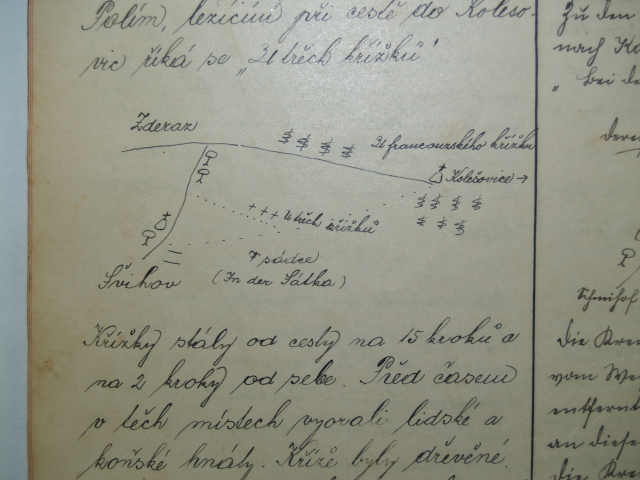 Polím, ležícím při cestě do Koleso-
vic říká se „U třech křížků"
Zderaz
U francouzského křížku
Kolešovice →
+ + + U třech křížků
V sádce
(In der Sátka)
Švihov
Křížky stály od cesty na 15 kroků a
na 2 kroky od sebe. Před časem
v těch místech vyorali lidské a
koňské hnáty. Kříže byly dřevěné.
Zu den
nach Ko
„ bei de
Schwihof
die Kreu
vom We
entfernt
an diese
die Kre